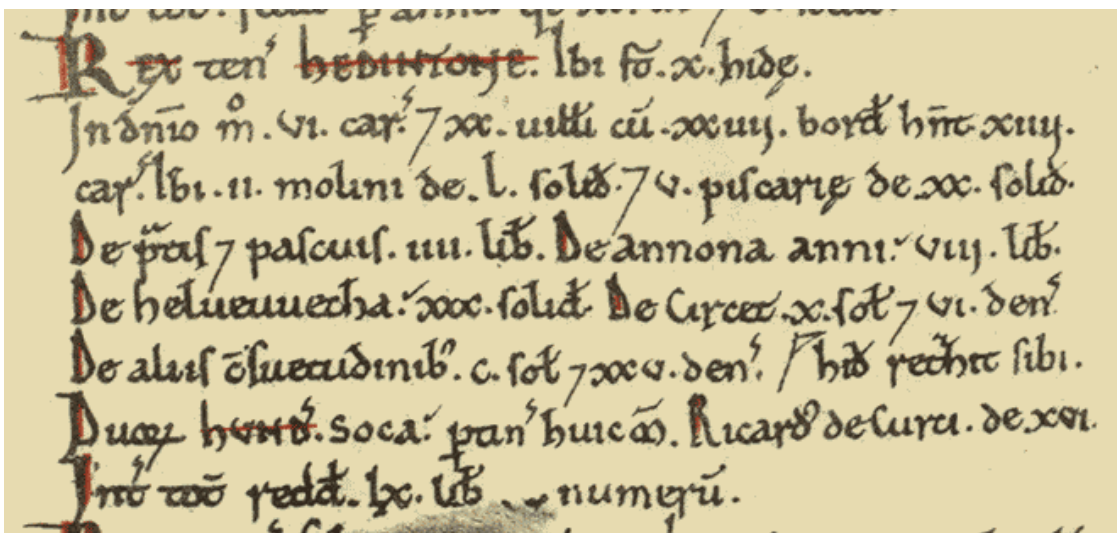 Rex ten̄ HEDINTONE. Ibi st̄. x. hidę.
In dn̄io m̊. vi. car̄. ⁊ xx. uiłłi cū. xxiiij. borđ hn̄t xiiij.
car̄. Ibi. ii. molini de. L. soliđ. ⁊ v. piscarię de xx. soliđ.
De p̄tis ⁊ pascuis. iiii. liƀ. De annona anni. viij. liƀ.
De helueuuecha. xxx. soliđ. De Circet. x. soł ⁊ vi. den̄
De aliis c̄suetudiniƀ. c. soł ⁊ xxv. den̄.
Duoꝝ HUND̄. Soca. ꝑtin̄ huic m̄. Ricard᾽ de Curci. de xvi.
hiđ sibi.
Int̄ totū redđ. lx. liƀ numerū.